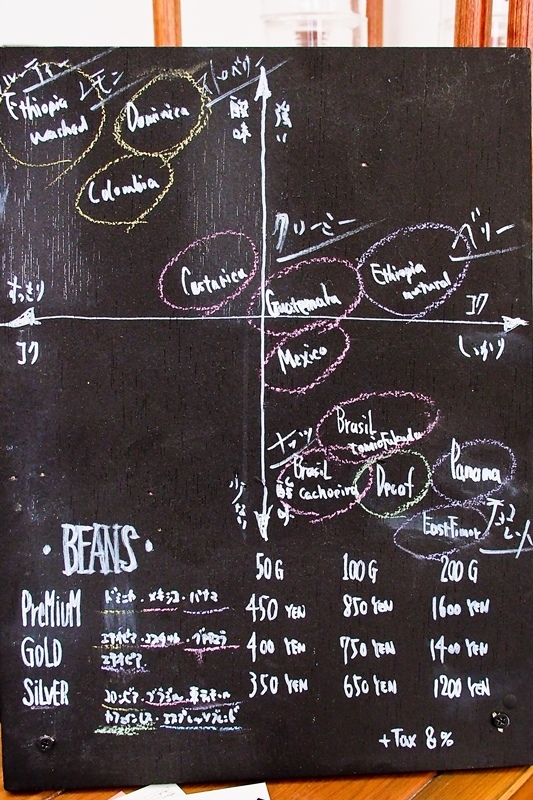 フルーティー レモン ストロベリー
Ethiopia
washed
Dominica
酸味 強い
Colombia
クリーミー
ベリー
Costarica
Guatemala
Ethiopia
natural
すっきり
コク
コク
しっかり
Mexico
Brasil
tomiofukuda
ナッツ
Brasil
cachoeira
Decaf
Panama
酸味 少なめ
East Timor
・BEANS・
50G 100G 200G
PREMIUM ドミニカ・メキシコ・パナマ 450 YEN 850 YEN 1600 YEN
GOLD エチオピア・コスタリカ・グアテマラ 400 YEN 750 YEN 1400 YEN
エチオピア
SILVER コロンビア・ブラジル・東ティモール 350 YEN 650 YEN 1200 YEN
カフェインレス・エスプレッソブレンド
+Tax 8%